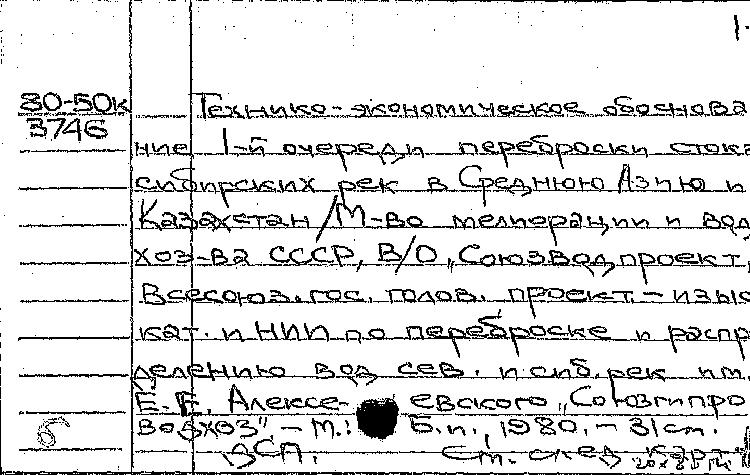 1.
80-50к
3746
Технико-экономическое обоснова
ние 1-й очереди переброски стока
сибирских рек в Среднюю Азию и
Казахстан /М-во мелиорации и вод.
хоз-ва СССР, В/О "Союзводпроект,
Всесоюз. гос. голов. проект.-изыс
кат. и НИИ по переброске и распр
делению вод сев. и сиб. рек им.
Е.Е. Алексе- евского "Союзгипро
водхоз" - М.: Б.и., 1980. - 31 ст.
ЗСП. См. след. карт